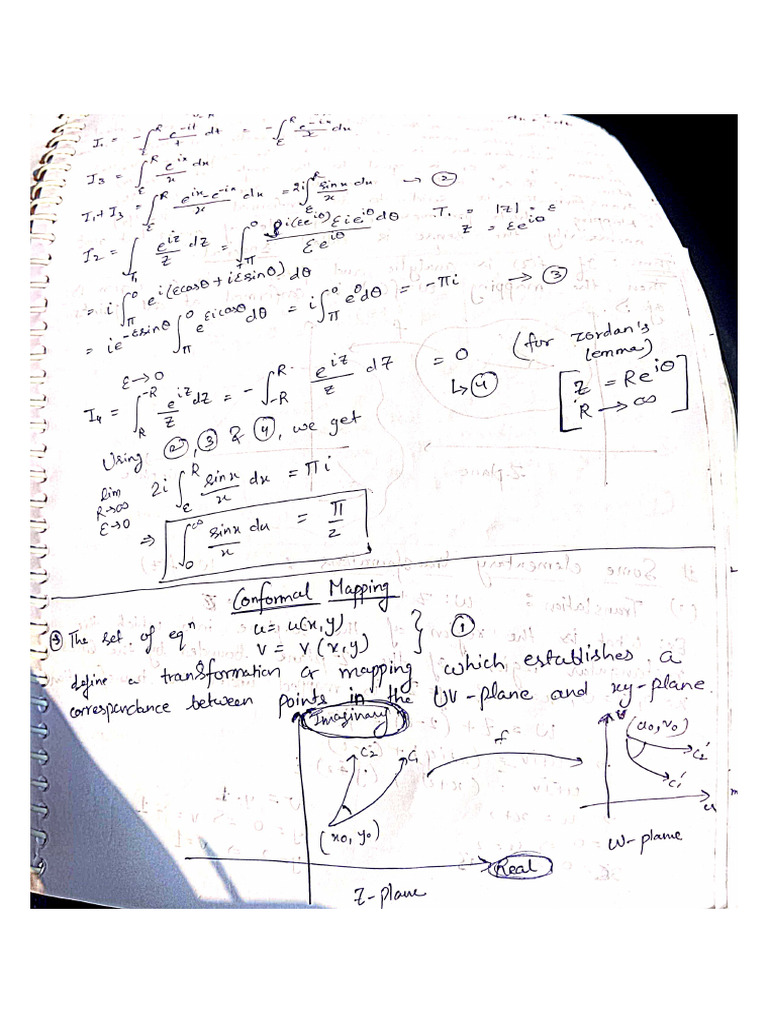 I₁ = -∫_ε^R e^{-it}/t dt = -∫_ε^R e^{-ix}/x dx
I₃ = ∫_ε^R e^{ix}/x dx
I₁+I₃ = ∫_ε^R e^{ix}-e^{-ix}/x dx = 2i∫_ε^R sinx/x dx → ②
I₂ = ∫_{T₁} e^{iz}/z dz = ∫_π^0 e^{i(εe^{iθ})} εie^{iθ}dθ / εe^{iθ} T₁ = |z| = ε
z = εe^{iθ}
= i∫_π^0 e^{i(εcosθ+iεsinθ)} dθ
= ie^{-εsinθ} ∫_π^0 e^{εicosθ} dθ = i∫_π^0 e^0 dθ = -πi → ③
ε→0
I₄ = ∫_R^{-R} e^{iz}/z dz = -∫_{-R}^R e^{iz}/z dz = 0 (for Jordan's lemma)
↳ ④ [z = Re^{iθ} R → ∞]
Using ②, ③ & ④, we get
lim R→∞ ε→0 2i∫_ε^R sinx/x dx = πi
⇒ ∫_0^∞ sinx/x dx = π/2
Conformal Mapping
The set of eqⁿ u = u(x,y)
v = v(x,y) } ①
define a transformation or mapping which establishes a
correspondance between points in the UV-plane and xy-plane.
Imaginary
C₂ C₁
(x₀, y₀)
Real
Z-plane
f
v
(u₀,v₀)
C₂'
C₁'
u
W-plane